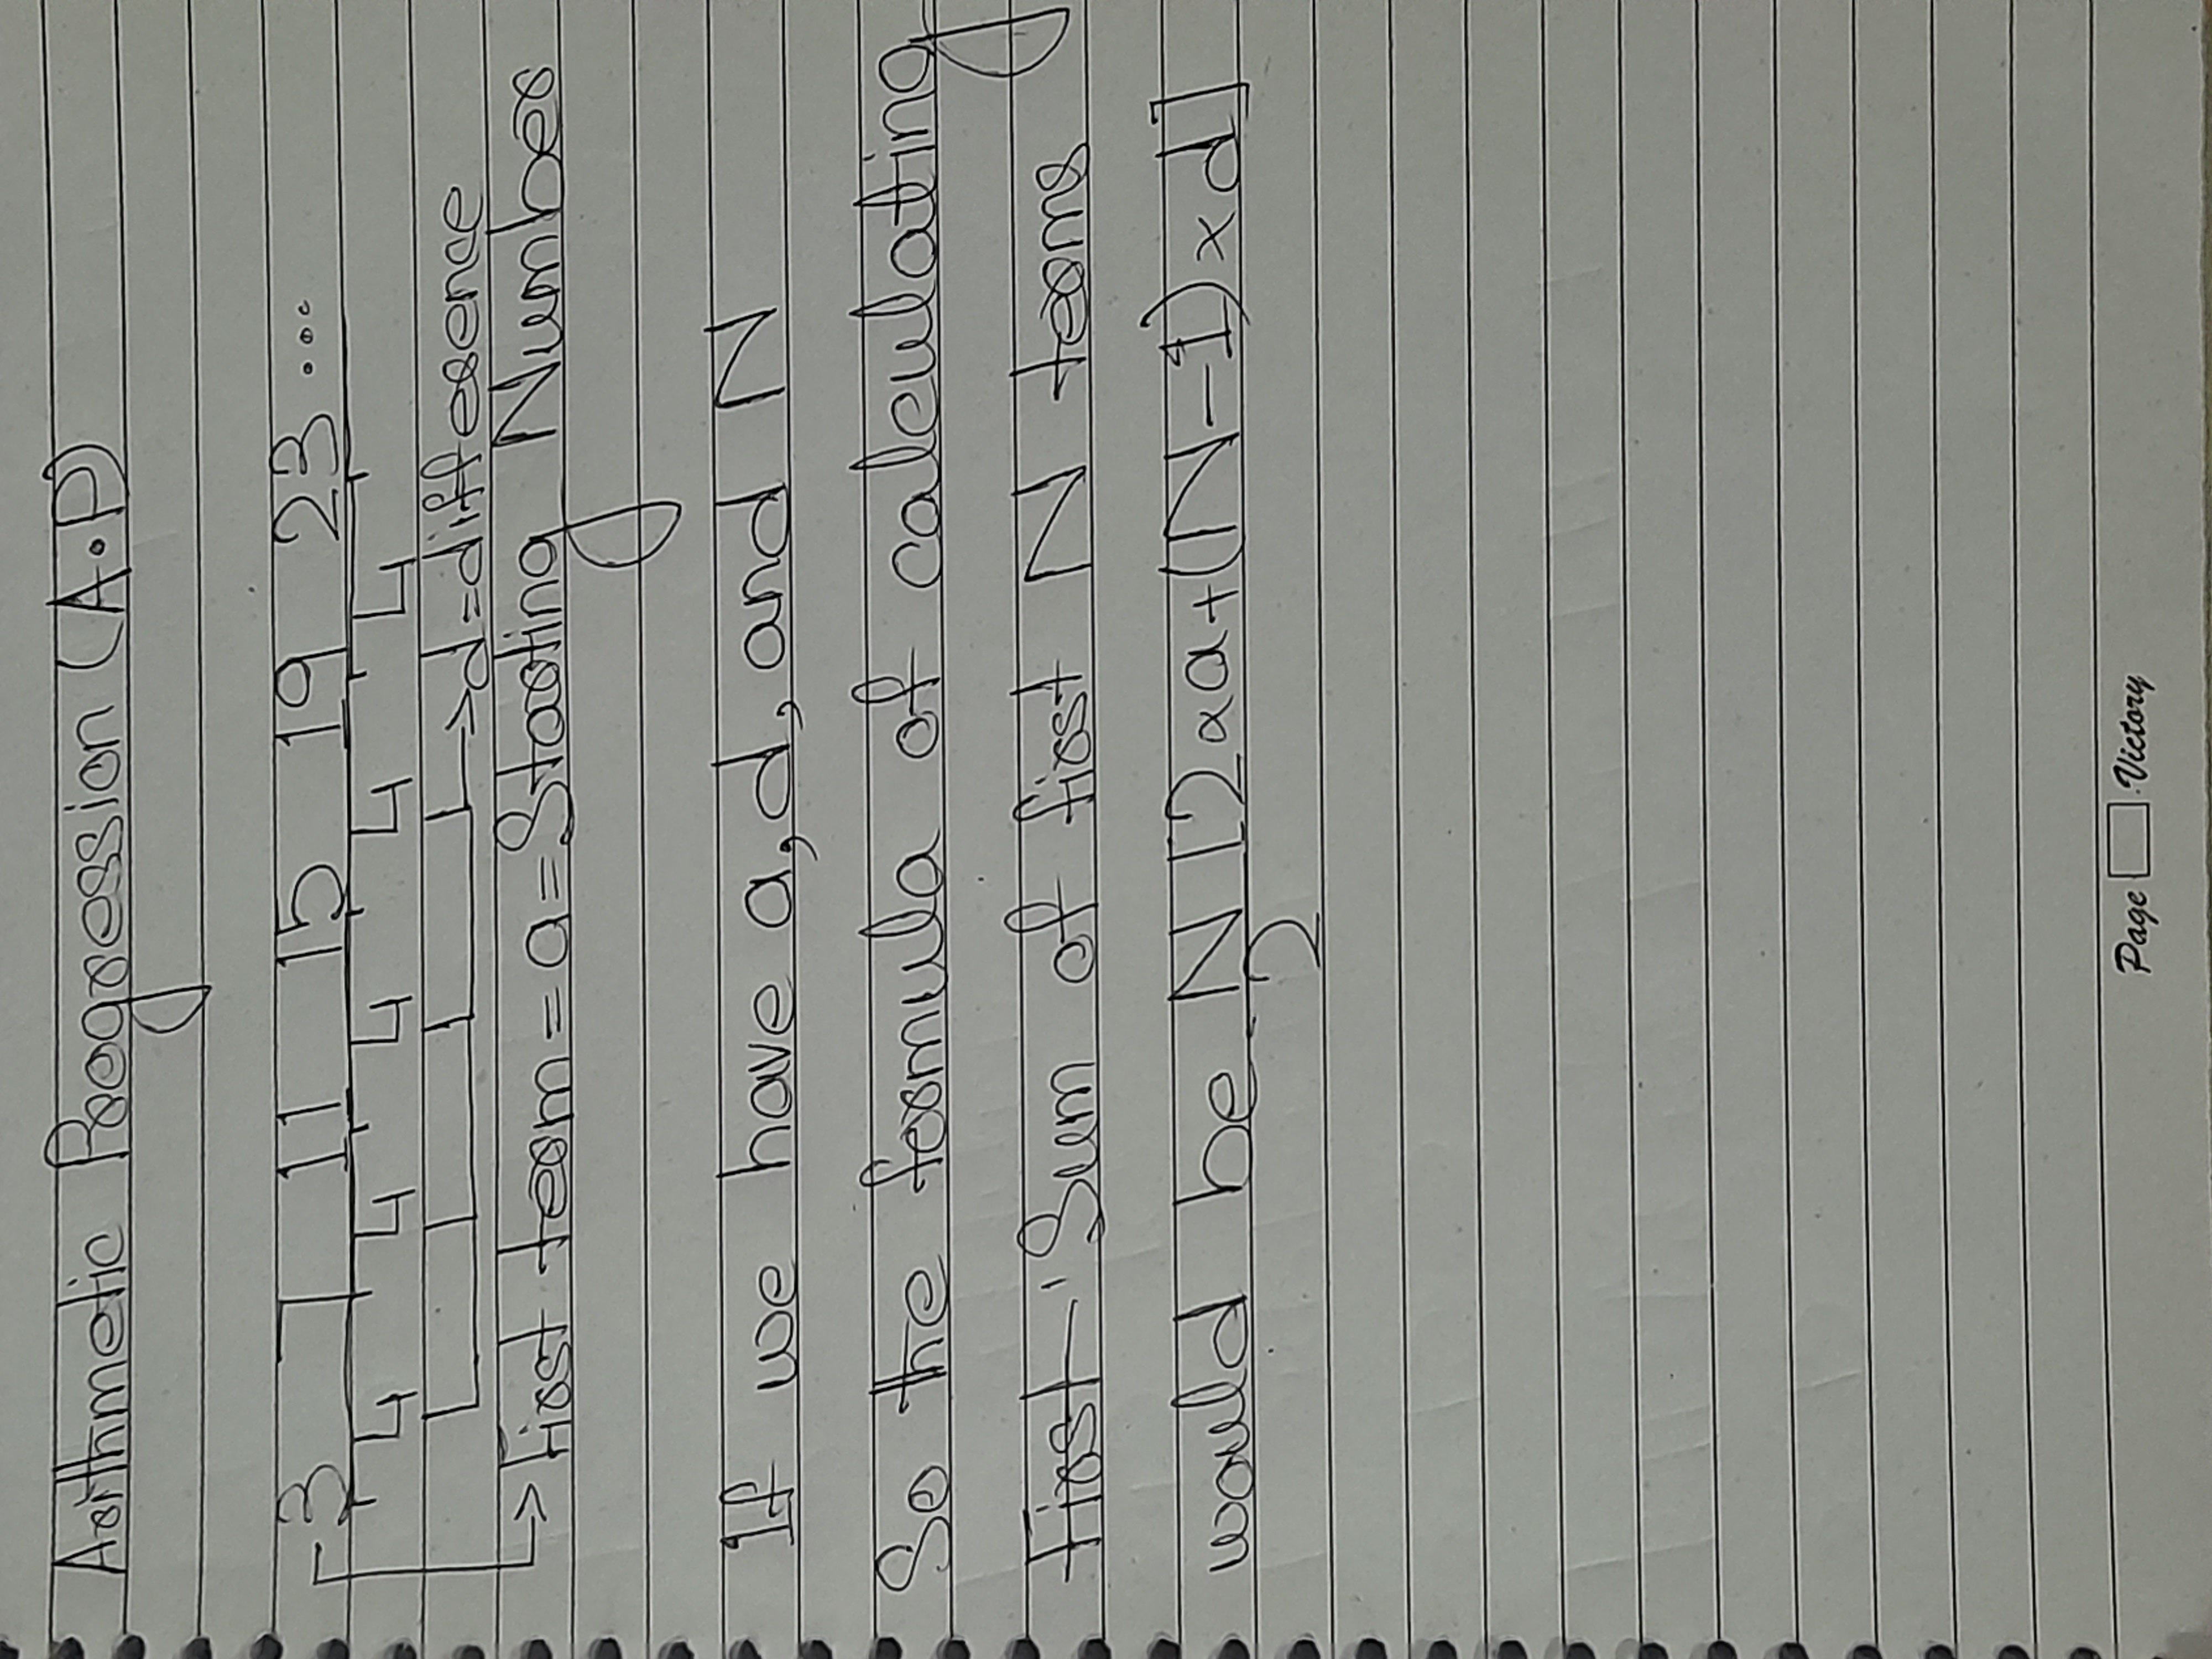 Arithmetic Progression (A.P)
3 7 11 15 19 23 ...
4 4 4 4 4
d=difference
First term = a = Starting Number
If we have a, d, and N
So the formula of calculating
First Sum of first N terms
would be N [2×a+(N-1)×d]
2
Page Victory